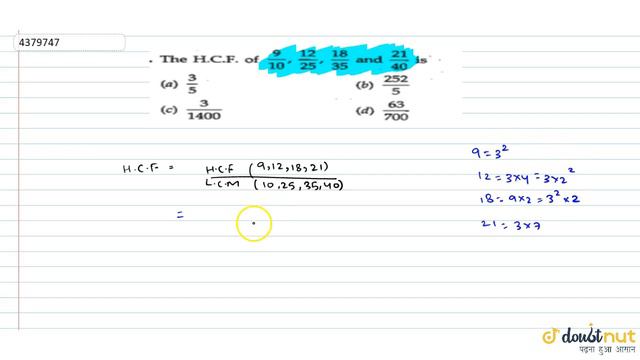 4379747
. The H.C.F. of 9/10, 12/25, 18/35 and 21/40 is
(a) 3/5 (b) 252/5
(c) 3/1400 (d) 63/700
H.C.F. = H.C.F (9,12,18,21) / L.C.M (10,25,35,40)
=
9 = 3²
12 = 3×4 = 3×2²
18 = 9×2 = 3²×2
21 = 3×7
doubtnut
पढ़ना हुआ आसान